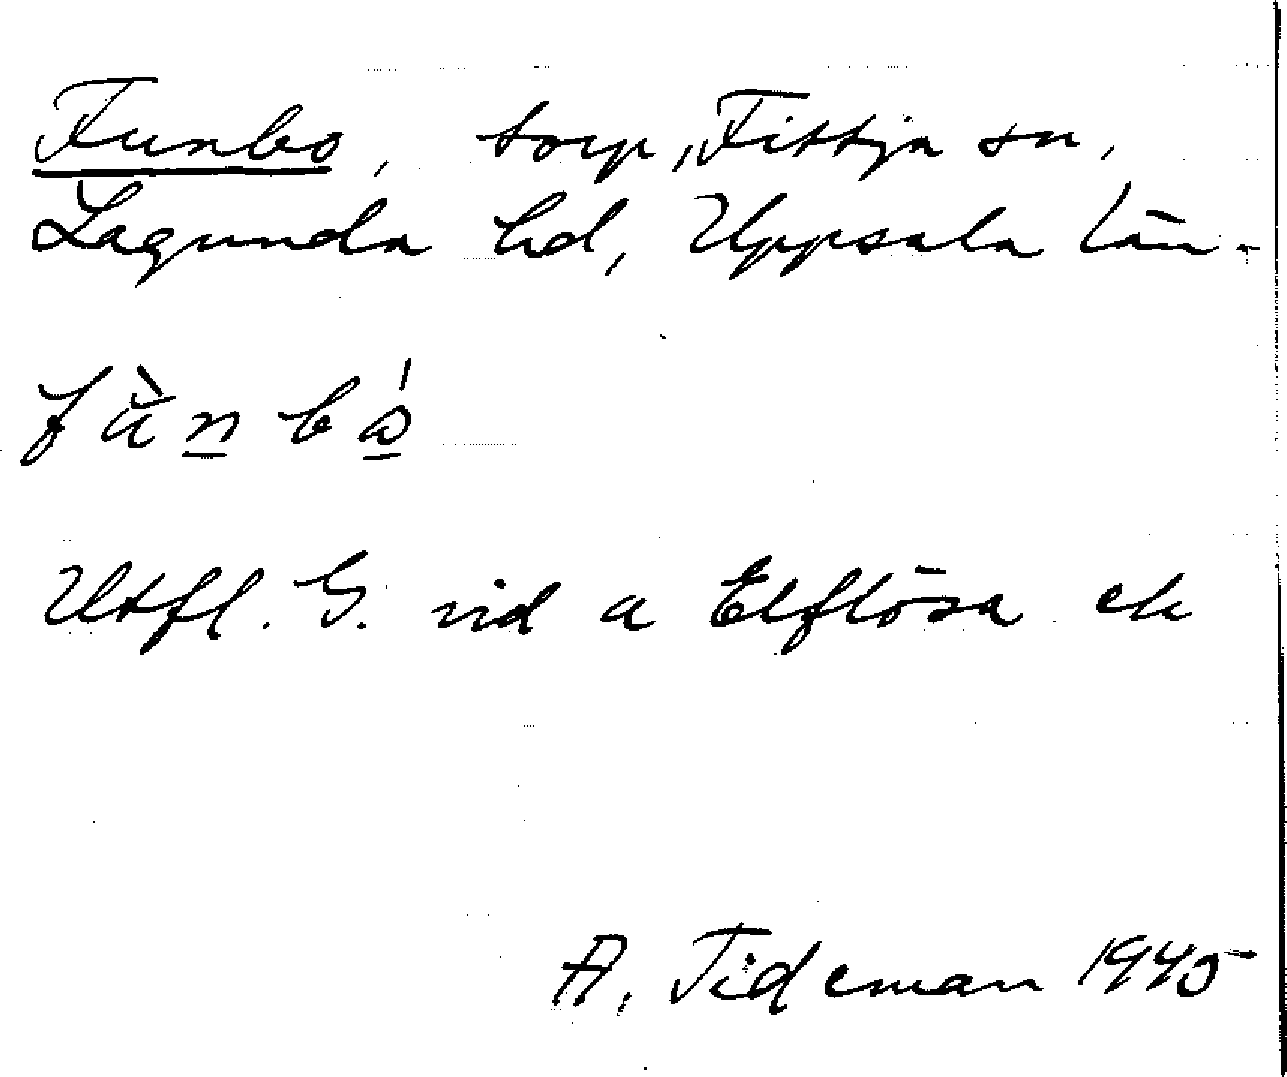 Funbo, torp, Fittja sn,
Lagunda hd, Uppsala län.
Utfl. G. vid a Elflösa ek
A. Tideman 1945